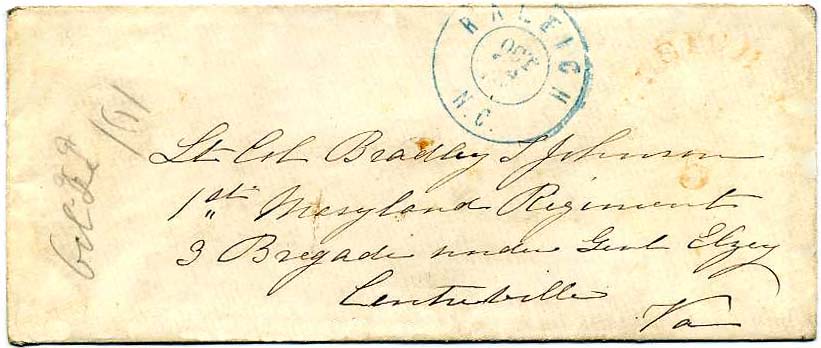 RALEIGH
OCT
N.C.
Lt Col Bradley T Johnson
1st Maryland Regiment
3 Bregade under Genl Elzey
Centreville
Va